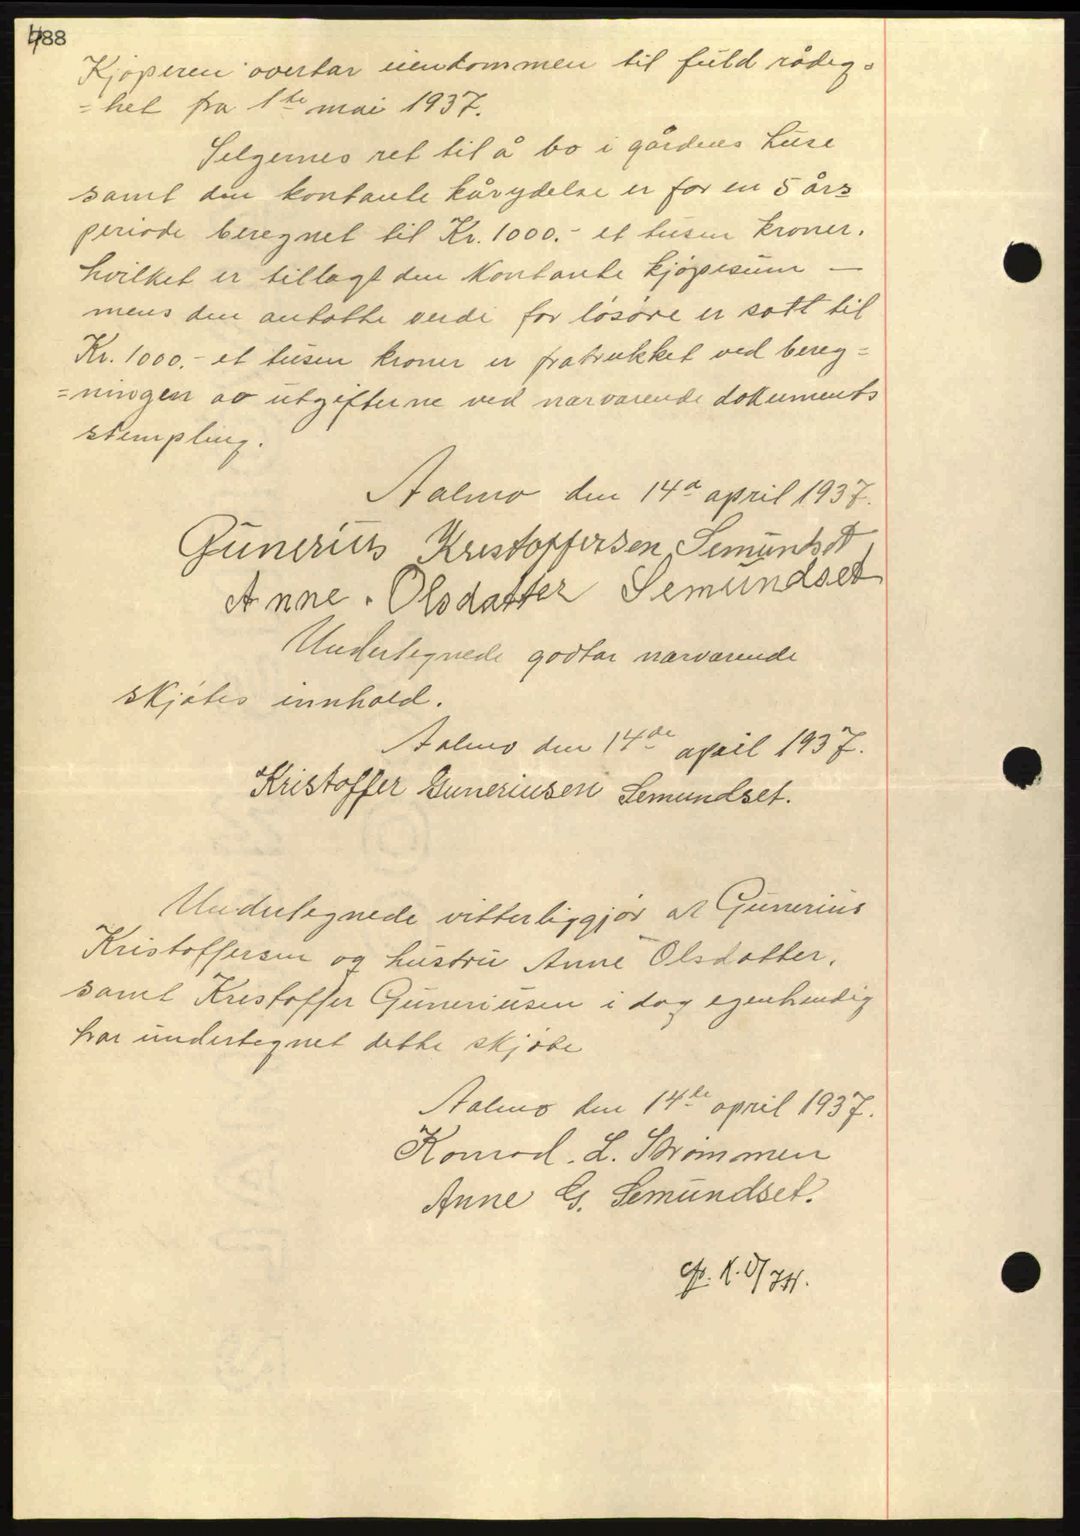 488
Kjøperen overtar eiendommen til fuld rådig=
=het fra 1ste mai 1937.
Selgernes ret til å bo i gårdens huse
samt den kontante kårydelse er for en 5 års
periode beregnet til Kr. 1000.- et tusen kroner.
hvilket er tillagt den kontante kjøpesum —
mens den antatte verdi for løsøre er satt til
Kr. 1000.- et tusen kroner er fratrukket ved bereg=
=ningen av utgifterne ved nærværende dokuments
stempling.
Aalmo den 14de april 1937.
Gunerius Kristoffersen Semundset
Anne . Olsdatter Semundset
Undertegnede godtar nærværende
skjøtes innhold.
Aalmo den 14de april 1937.
Kristoffer Guneriusen Semundset.
Undertegnede vitterliggjør at Gunerius
Kristoffersen og hustru Anne Olsdatter.
samt Kristoffer Guneriusen i dag egenhendig
har undertegnet dette skjøte
Aalmo den 14de april 1937.
Konrad. L. Strømmen
Anne G. Semundset.